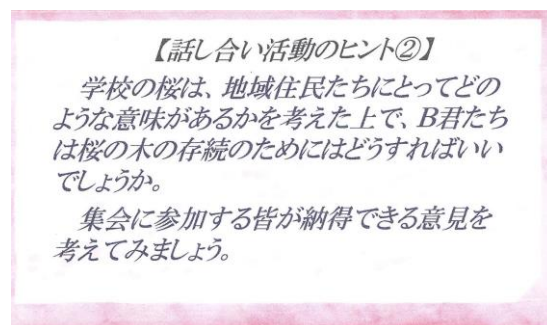 【話し合い活動のヒント②】
学校の桜は、地域住民たちにとってどの
ような意味があるかを考えた上で、B君たち
は桜の木の存続のためにはどうすればいい
でしょうか。
集会に参加する皆が納得できる意見を
考えてみましょう。